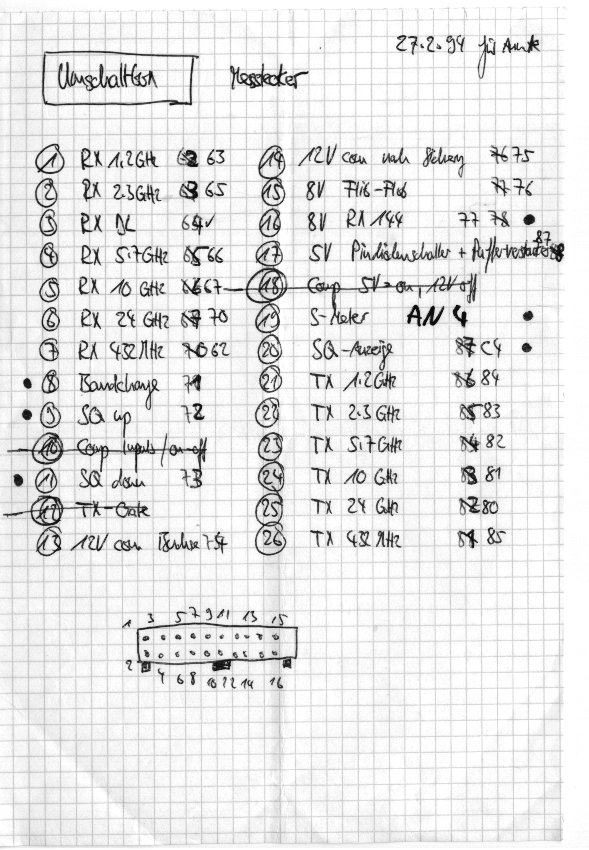 27.2.94 für
Umschaltbox
Messstecker
1 RX 1.2 GHz 63
2 RX 2.3 GHz 65
3 RX DL 64
4 RX 5.7 GHz 66
5 RX 10 GHz 67
6 RX 24 GHz 70
7 RX 432 MHz 62
8 Bandchange 71
9 SQ up 72
10 Comp Inputs / on-off
11 SQ down 73
12 TX-Gate
13 12V com 74
14 12V com nach 75
15 8V 76
16 8V RX 144 77
17 5V + Pufferverstärker 87
18 Comp 5V = on, 12V off
19 S-Meter AN 4
20 SQ-Anzeige C4
21 TX 1.2 GHz 84
22 TX 2.3 GHz 83
23 TX 5.7 GHz 82
24 TX 10 GHz 81
25 TX 24 GHz 80
26 TX 432 MHz 85
1 3 5 7 9 11 13 15
2 4 6 8 10 12 14 16